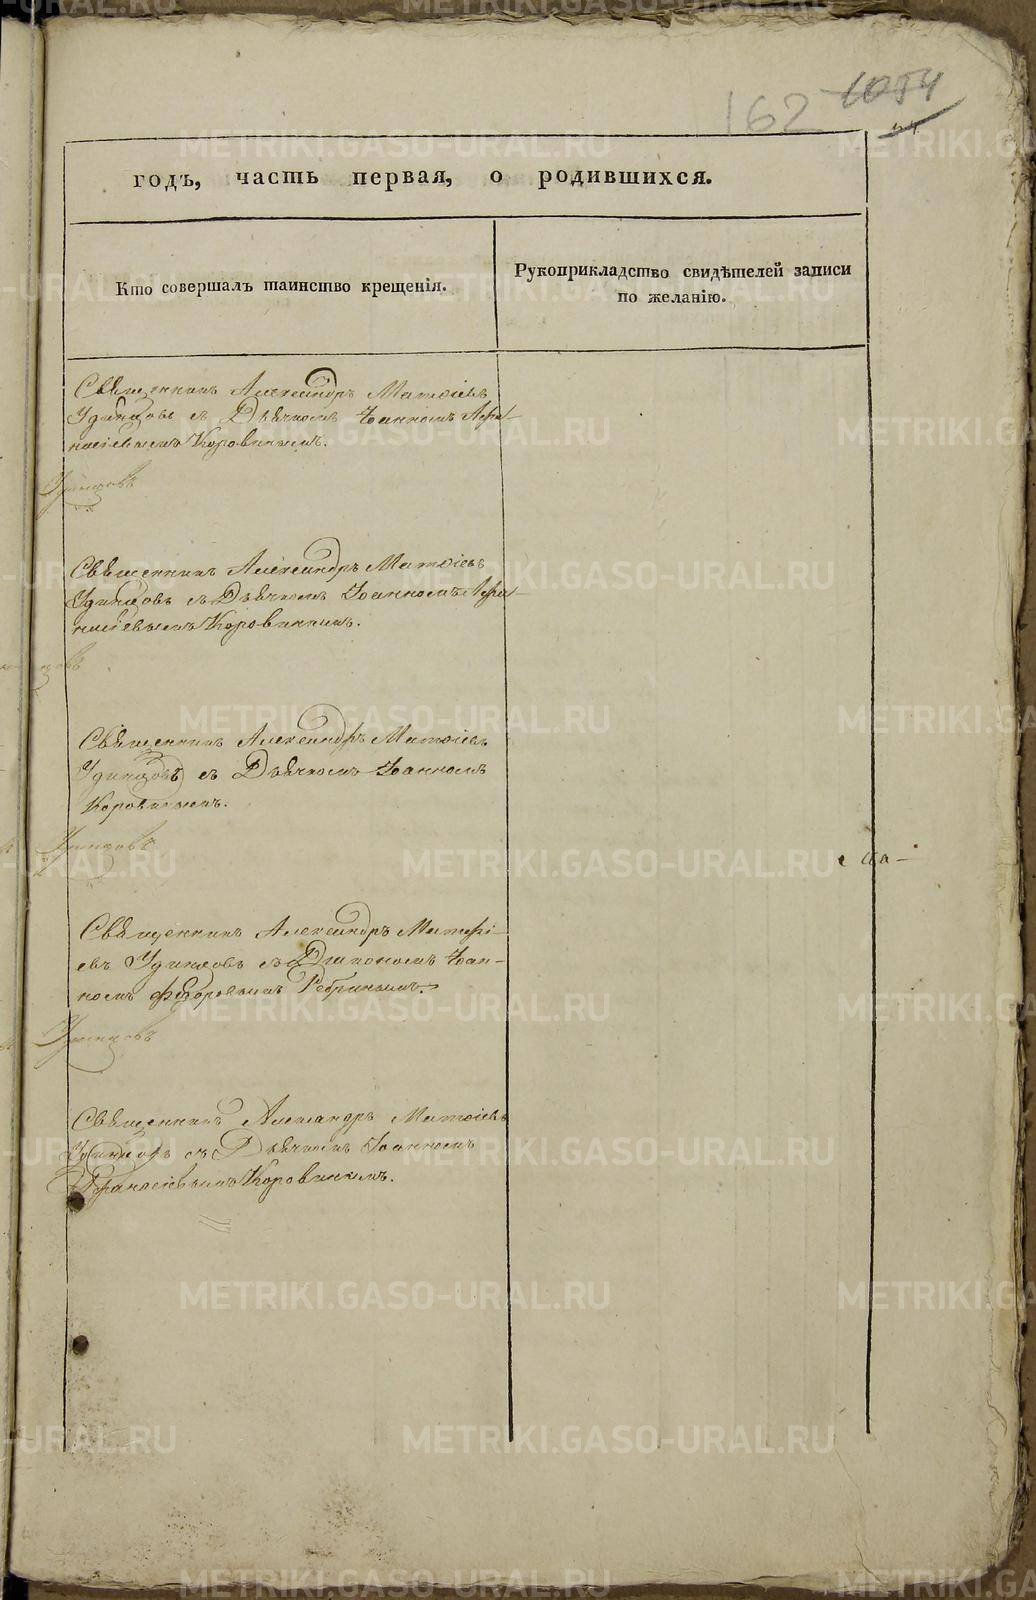 162 1054
годъ, часть первая, о родившихся.
Кто совершалъ таинство крещенія.
Рукоприкладство свидѣтелей записи
по желанію.
Священникъ Александръ Матѳіевъ
Удинцовъ съ Дьячкомъ Іоанномъ Афа-
насіевымъ Коровинымъ.
Удинцовъ
Священникъ Александръ Матѳіевъ
Удинцовъ съ Дьячкомъ Іоанномъ Афа-
насіевымъ Коровинымъ.
Священникъ Александръ Матѳіевъ
Удинцовъ съ Дьячкомъ Іоанномъ
Коровинымъ.
Удинцовъ
Священникъ Александръ Матфі-
евъ Удинцовъ съ Діакономъ Іоан-
номъ Федоровымъ Ребринымъ.
Удинцовъ
Священникъ Александръ Матѳіевъ
Удинцовъ съ Дьячкомъ Іоанномъ
Афанасіевымъ Коровинымъ.
METRIKI.GASO-URAL.RU